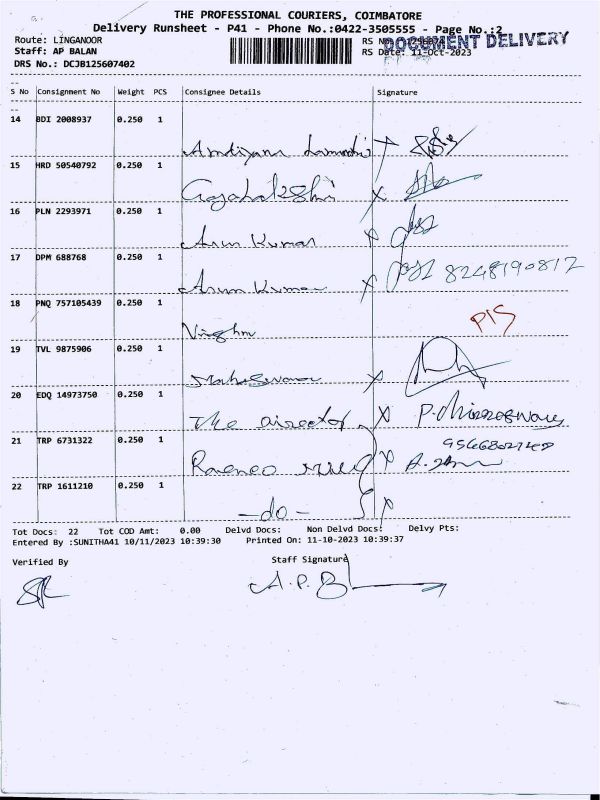 THE PROFESSIONAL COURIERS, COIMBATORE
Delivery Runsheet - P41 - Phone No.:0422-3505555 - Page No.:2
Route: LINGANOOR
RS No.:
DOCUMENT DELIVERY
Staff: AP BALAN
RS Date: 11-Oct-2023
DRS No.: DCJB125607402
S No Consignment No Weight PCS Consignee Details Signature
14 BDI 2008937 0.250 1
15 HRD 50540792 0.250 1
Gajalakshi
16 PLN 2293971 0.250 1
Arun Kumar
17 DPM 688768 0.250 1
Arun Kumar 8248190812
18 PNQ 757105439 0.250 1
19 TVL 9875906 0.250 1
20 EDQ 14973750 0.250 1
The Director
21 TRP 6731322 0.250 1
22 TRP 1611210 0.250 1
-do-
Tot Docs: 22 Tot COD Amt: 0.00 Delvd Docs: Non Delvd Docs: Delvy Pts:
Entered By :SUNITHA41 10/11/2023 10:39:30 Printed On: 11-10-2023 10:39:37
Verified By Staff Signature
A.P.B